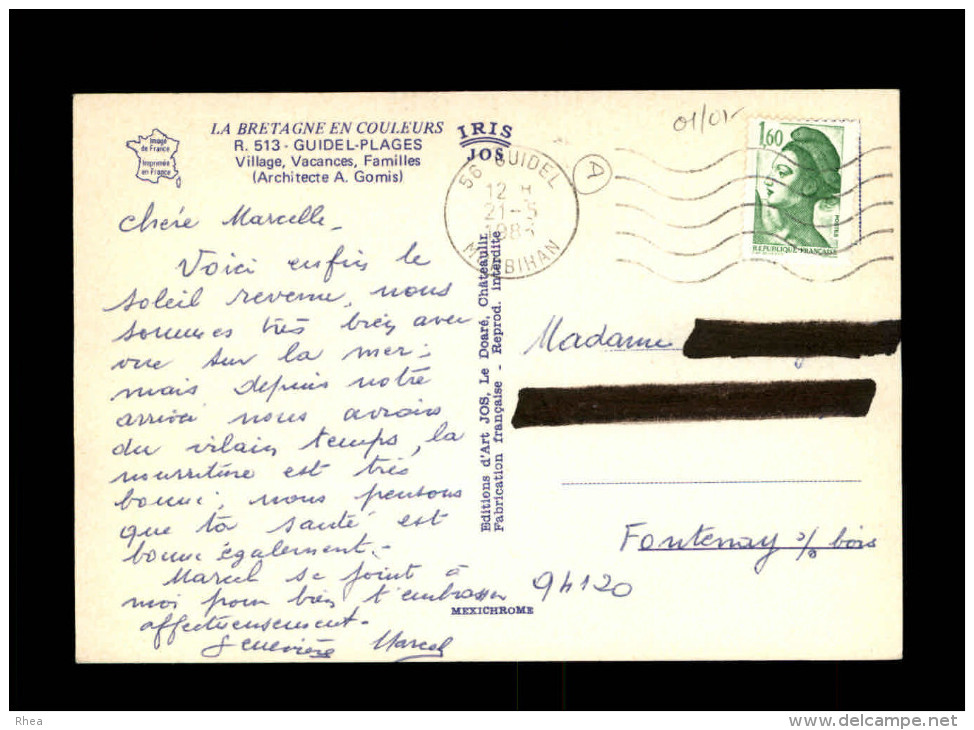 Image
de France
Imprimée
en France
LA BRETAGNE EN COULEURS
R. 513 - GUIDEL-PLAGES
Village, Vacances, Familles
(Architecte A. Gomis)
IRIS
JOS
56 GUIDEL
12 H
21-5
MORBIHAN
A
01/01
1,60
POSTES
REPUBLIQUE FRANÇAISE
Chère Marcelle_
Voici enfin le
soleil revenu, nous
sommes très bien avec
vue sur la mer;
mais depuis notre
arrivée nous avions
du vilain temps, la
nourriture est très
bonne; nous pensons
que ta santé est
bonne également.-
Marcel se joint à
moi pour bien t'embrasser
affectueusement.
Geneviève Marcel
Editions d'Art JOS, Le Doaré, Châteaulin
Fabrication française - Reprod. interdite
MEXICHROME
Madame
Fontenay s/s bois
94120
Rhea
www.delcampe.net